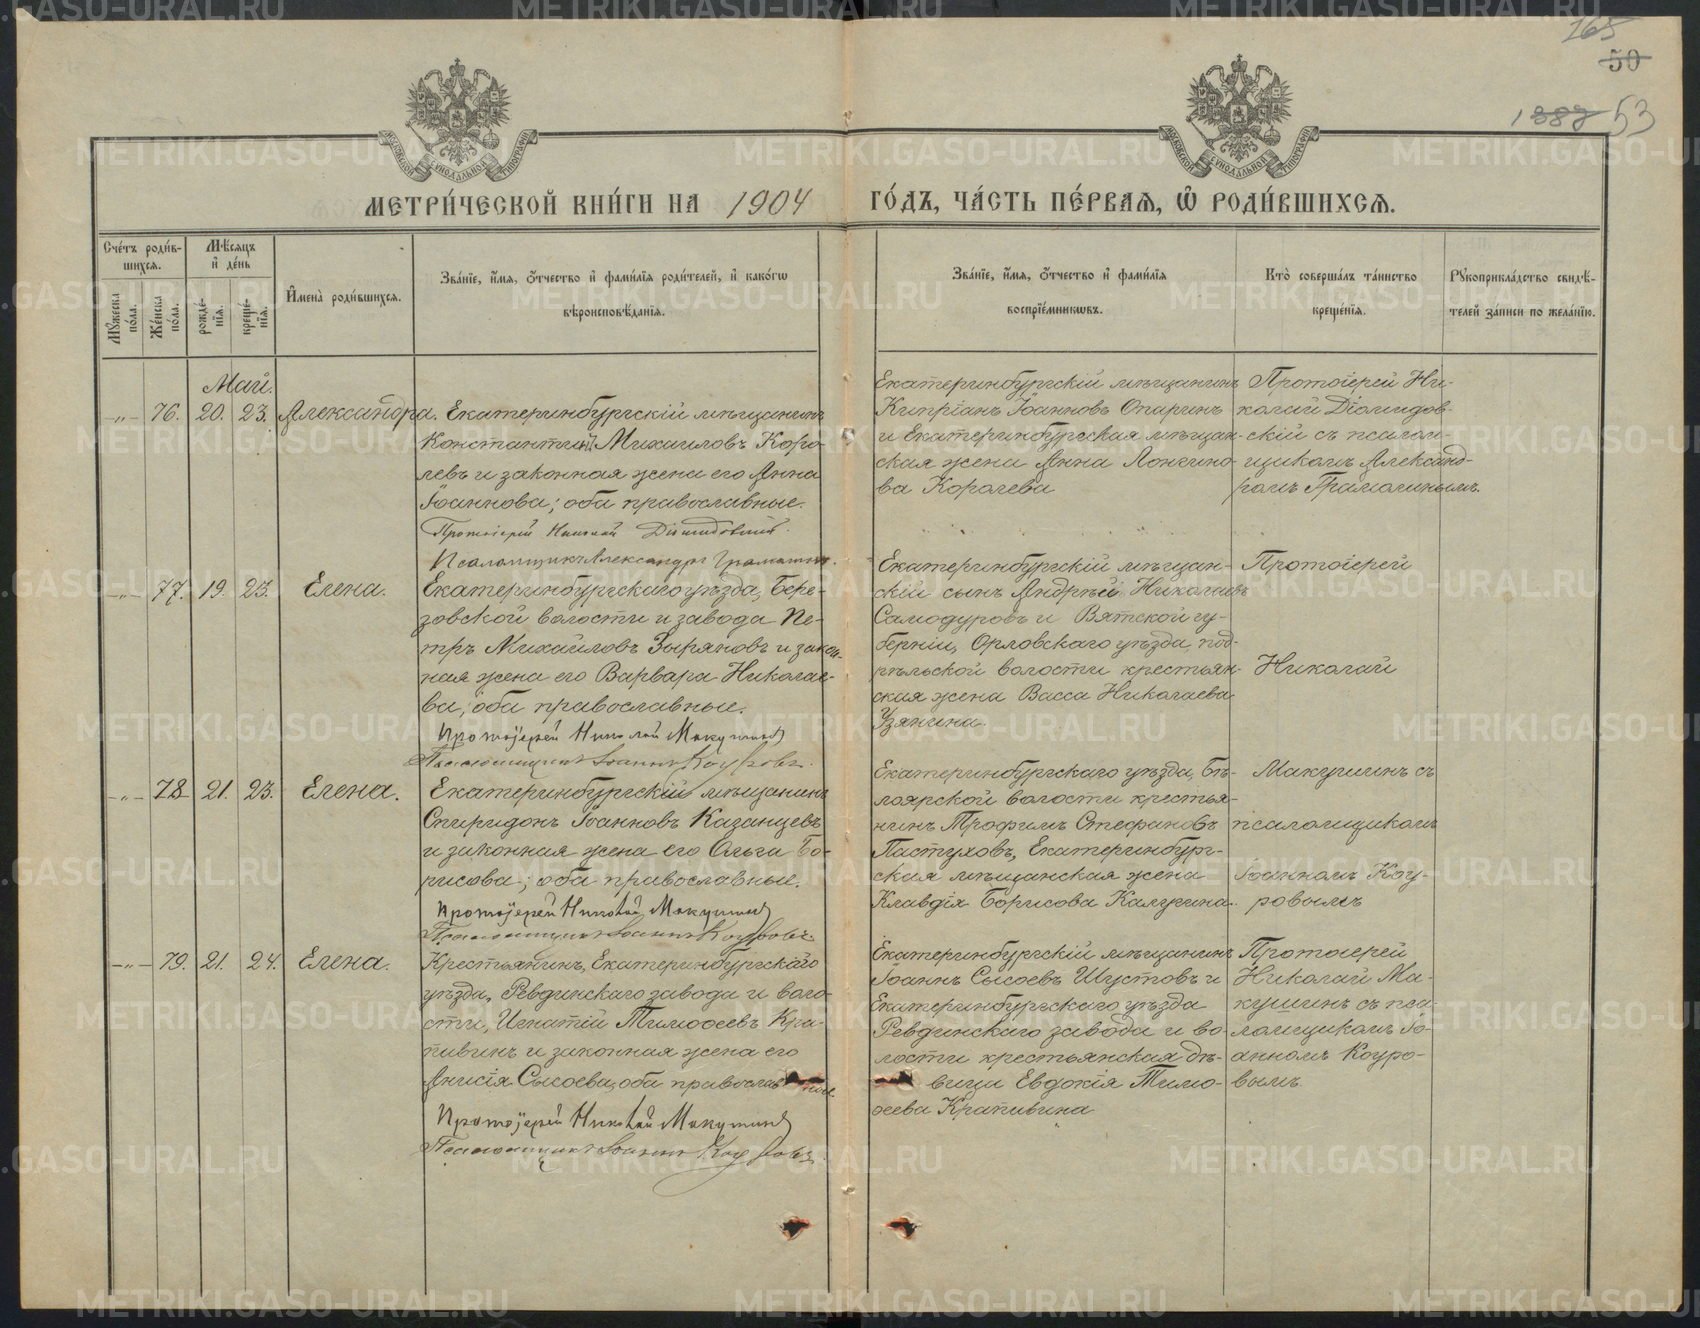 165
50
1388 53
МЕТРИ́ЧЕСКОЙ КНИ́ГИ НА 1904 ГО́ДЪ, ЧА́СТЬ ПЕ́РВАѦ, Ѡ҆ РОДИ́ВШИХСѦ.
Сче́тъ роди́в-
шихсѧ.
Мꙋ́жеска
по́ла.
Же́нска
по́ла.
Мѣ́сѧцъ
и҆ де́нь
рожде́-
нїѧ.
креще́-
нїѧ.
И҆мена̀ роди́вшихсѧ.
Зва́нїе, и҆́мѧ, ѻ҆́тчество и҆ фами́лїѧ роди́телей, и҆ како́гѡ
вѣроисповѣ́данїѧ.
Зва́нїе, и҆́мѧ, ѻ҆́тчество и҆ фами́лїѧ
воспрїе́мникѡвъ.
Кто̀ соверша́лъ та́инство
креще́нїѧ.
Рꙋкоприкла́дство свидѣ́-
телей за́писи по жела́нїю.
Май.
-„- 76. 20. 23. Александра. Екатеринбургскій мѣщанинъ
Константинъ Михаиловъ Коро-
левъ и законная жена его Анна
Іоаннова; оба православные.
Протоіерей Николай Діомидовскій.
Псаломщикъ Александръ Грамолинъ.
Екатеринбургскій мѣщанинъ
Кипріанъ Іоанновъ Опаринъ
и Екатеринбургская мѣщан-
ская жена Анна Лонгино-
ва Королева
Протоіерей Ни-
колай Діомидов-
скій съ псалом-
щикомъ Александ-
ромъ Грамолинымъ.
-„- 77. 19. 23. Елена. Екатеринбургскаго уѣзда, Бере-
зовской волости и завода Пе-
тръ Михаиловъ Зыряновъ и закон-
ная жена его Варвара Николае-
ва; оба православные.
Протоіерей Николай Макушинъ
Псаломщикъ Іоаннъ Коуровъ.
Екатеринбургскій мѣщан-
скій сынъ Андрѣй Николаевъ
Самодуровъ и Вятской гу-
берніи, Орловскаго уѣзда, под-
рѣльской волости крестьян-
ская жена Васса Николаева
Узянина.
Протоіерей
Николай
-„- 78 21. 23. Елена. Екатеринбургскій мѣщанинъ
Спиридонъ Іоанновъ Казанцевъ
и законная жена его Ольга Бо-
рисова; оба православные.
Протоіерей Николай Макушинъ
Псаломщикъ Іоаннъ Коуровъ.
Екатеринбургскаго уѣзда, Бѣ-
лоярской волости крестья-
нинъ Трофимъ Стефановъ
Пастуховъ, Екатеринбург-
ская мѣщанская жена
Клавдія Борисова Калугина.
Макушинъ съ
псаломщикомъ
Іоанномъ Коу-
ровымъ
-„- 79. 21. 24. Елена. Крестьянинъ, Екатеринбургскаго
уѣзда, Ревдинскаго завода и воло-
сти, Игнатій Тимоѳеевъ Кра-
пивинъ и законная жена его
Анисія Сысоева; оба православные.
Протоіерей Николай Макушинъ
Псаломщикъ Іоаннъ Коуровъ.
Екатеринбургскій мѣщанинъ
Іоаннъ Сысоевъ Шустовъ и
Екатеринбургскаго уѣзда
Ревдинскаго завода и во-
лости крестьянская дѣ-
вица Евдокія Тимо-
ѳеева Крапивина
Протоіерей
Николай Ма-
кушинъ съ пса-
ломщикомъ Іо-
анномъ Коуро-
вымъ
METRIKI.GASO-URAL.RU